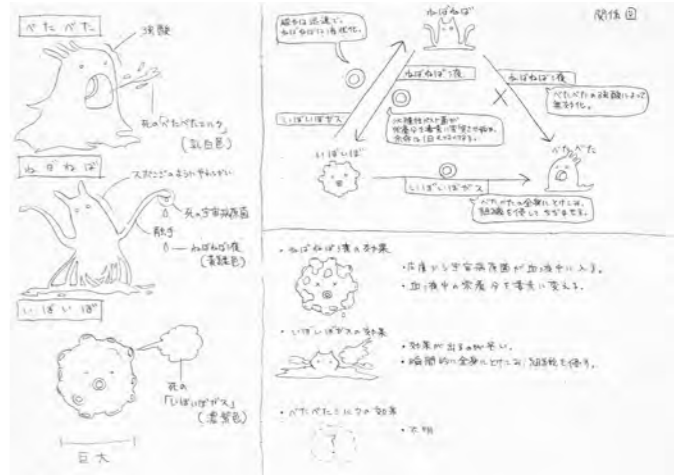 べたべた
強酸
死の「べたべたミルク」
(乳白色)
ねばねば
スポンジのようにやわらかい
死の宇宙放線菌
触手
ねばねば液
(黄緑色)
いぼいぼ
死の
「いぼいぼガス」
(濃紫色)
巨大
関係図
ねばねば
ねばねばは液状化。
ねばねば液
ねばねば液
べたべたの強酸によって
無効化。
いぼいぼガス
いぼいぼ
べたべた
いぼいぼガス
べたべたの全身にとけこみ、
組織を侵して
・ねばねば液の効果
・皮膚から宇宙放線菌が血液中に入る。
・血液中の栄養分を毒素に変える。
・いぼいぼガスの効果
・効果が出るのが早い。
・瞬間的に全身にとけこみ、組織を侵す。
・べたべたミルクの効果
?
・不明